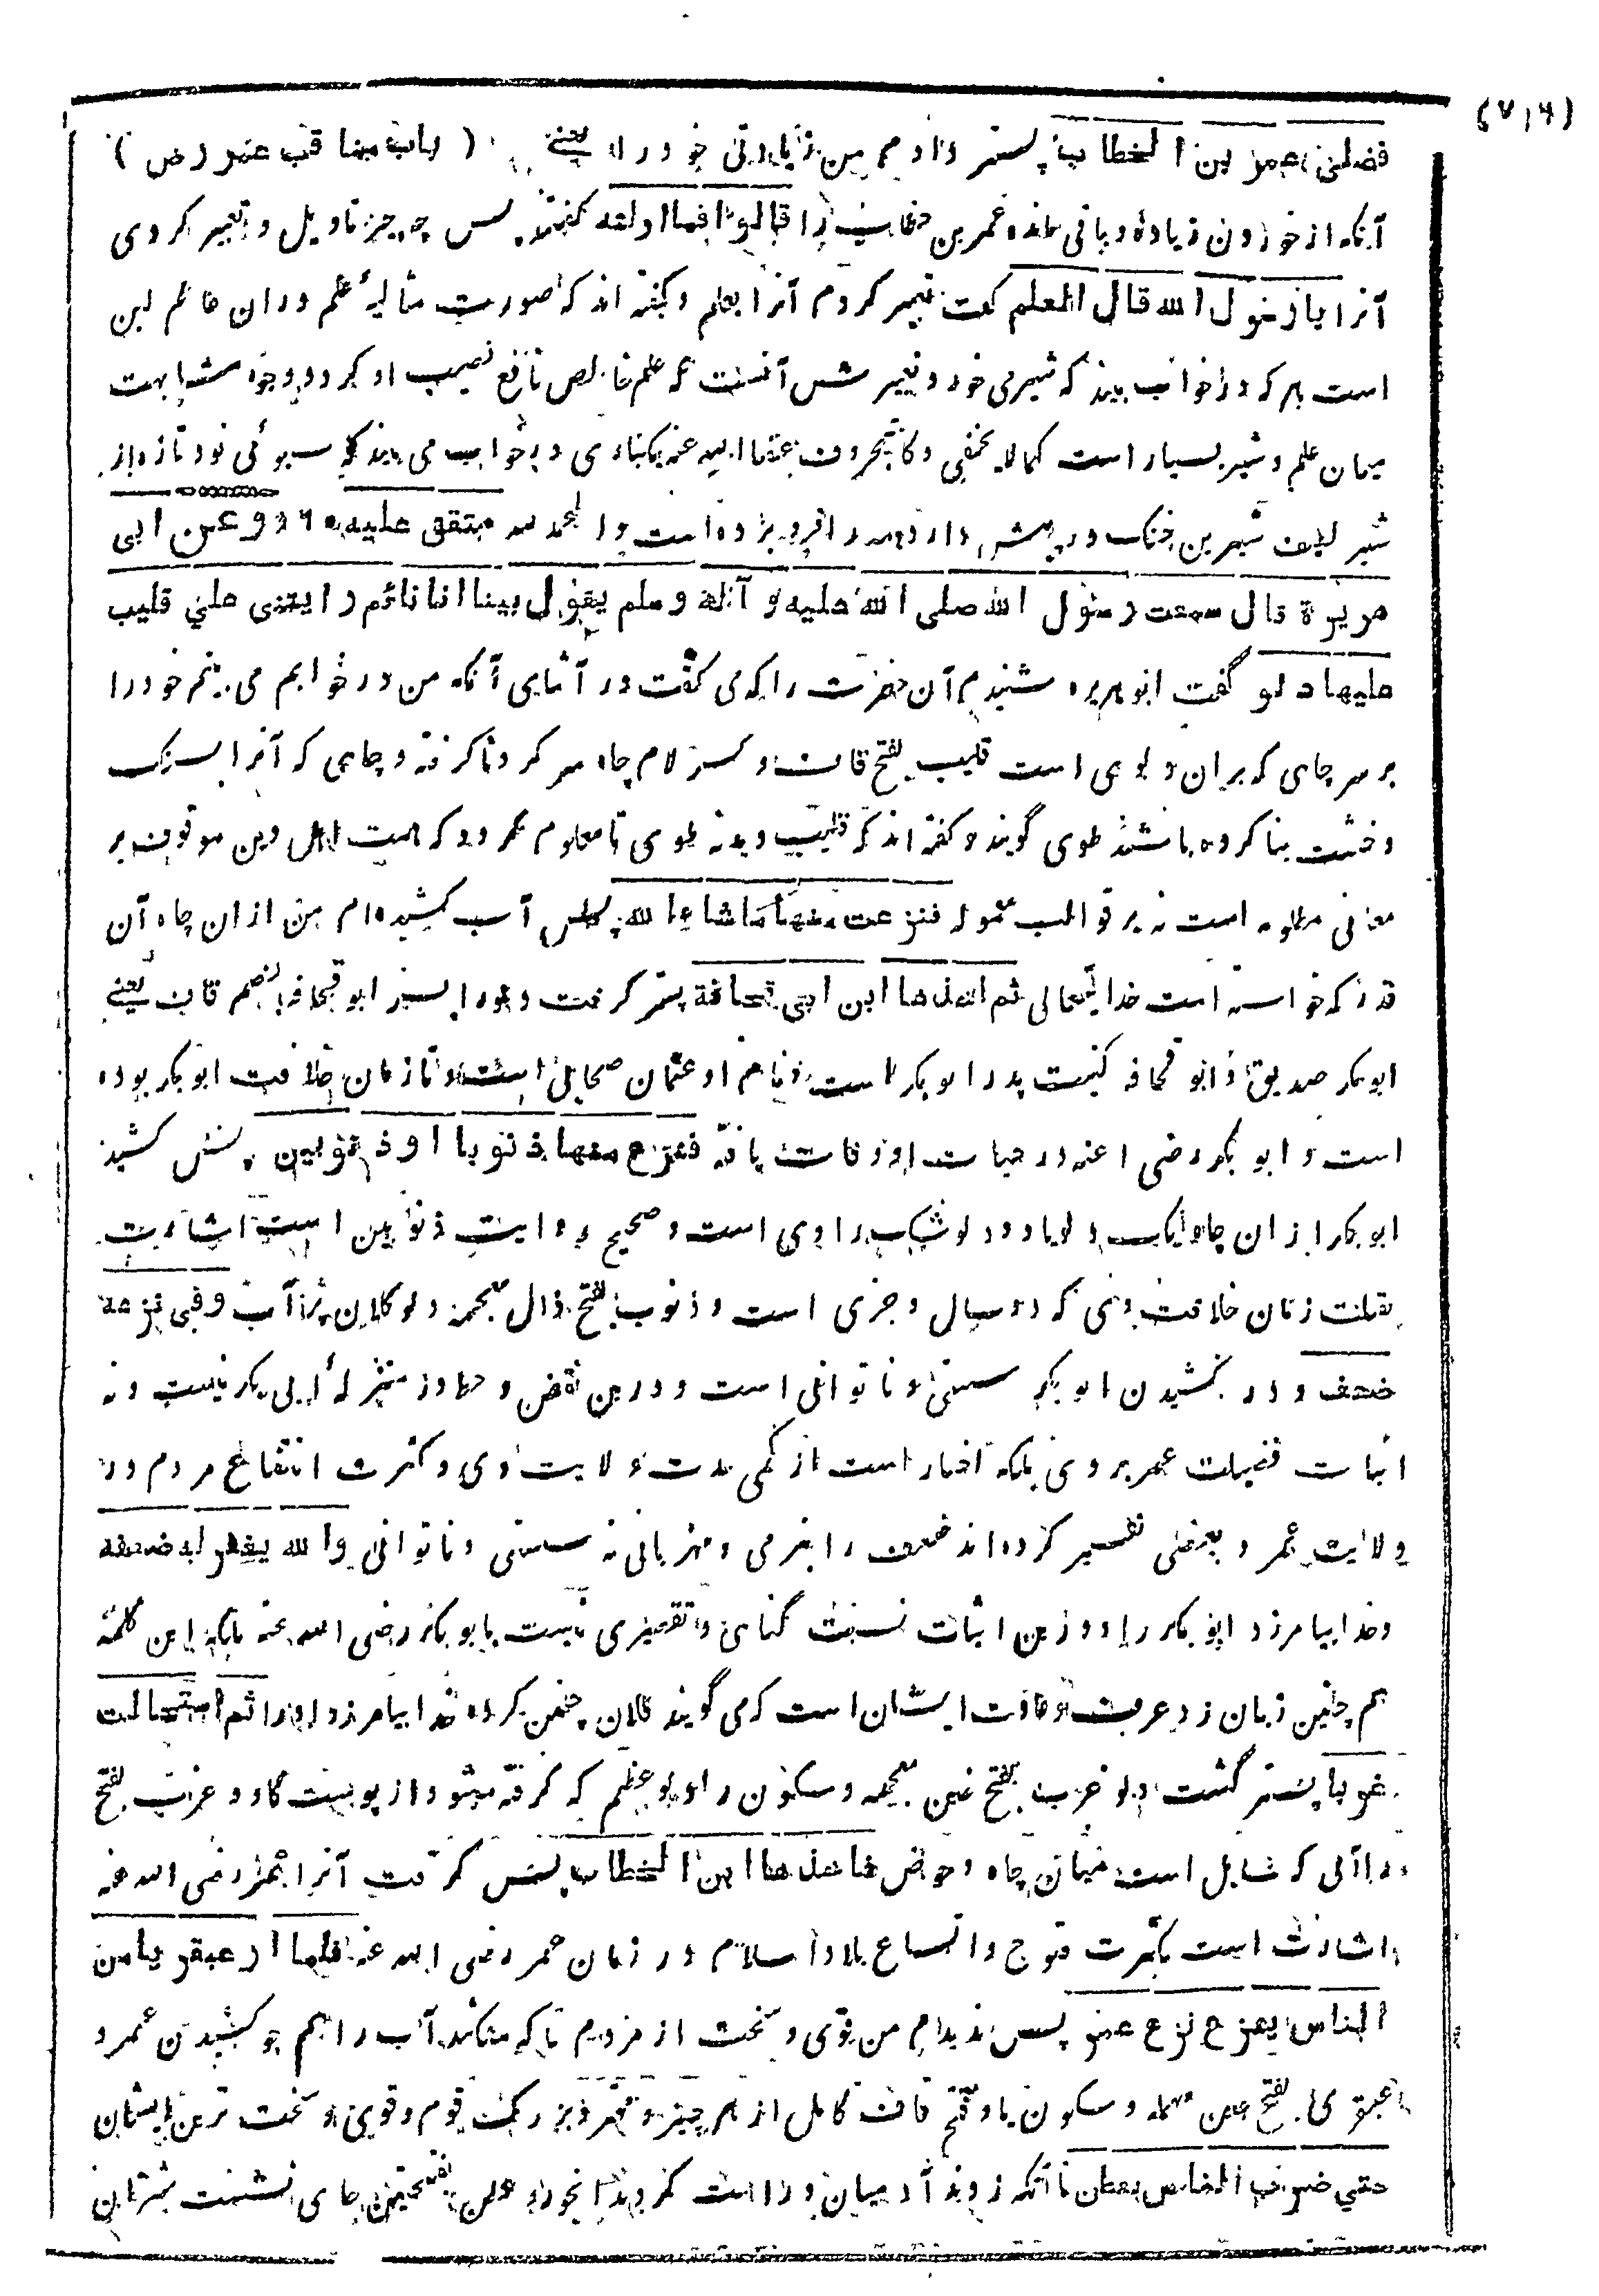 (۷۱۴)
فضلی عمر بن الخطاب پستر دادم من زیادتی خود را یعنے ( باب مناقب عمر رض )
آنکه از خوردن زیاده و باقی مانده عمر بن خطاب را قالوا فما اولته گفتند پس چه چیز تاویل و تعبیر کردی
آنرا یا رسول الله قال العلم گفت تعبیر کردم آنرا بعلم و گفته اند که صورت مثالیهٔ علم دران عالم لبن
است هر که در خواب بیند که شیر می خورد تعبیرش آنست که علم خالص نافع نصیب او گردد و وجوه مشابهت
میان علم و شیر بسیار است کمالا یخفی و کاتب حروف عفا الله عنه یکباری در خواب می بیند که سبوئی نو تازه از
شیر لطیف شیرین خنک در پیش دارد و فرو برده است و الحمد لله متفق علیه وعن ابی
هریرة قال سمعت رسول الله صلی الله علیه و آله و سلم یقول بینا انا نائم رایتنی علی قلیب
علیها دلو گفت ابو هریره شنیدم آن حضرت را که می گفت در اثنای آنکه من در خوابم می بینم خود را
بر سر چاهی که بران دلوی است قلیب بفتح قاف و کسر لام چاه سر گردنا گرفته و چاهی که آنرا بسنگ
و خشت بنا کرده باشند طوی گویند و گفته اند که قلیب دیدنه طوی تا معلوم گردد که همت اهل دین موقوف بر
معانی مطلوبه است نه بر قوالب معموله فنزعت منها ما شاء الله پس آب کشیده ام من ازان چاه آن
قدر که خواسته است خدا یتعالی ثم اخذها ابن ابی قحافة پستر گرفت دلو را پسر ابو قحافه بضم قاف یعنے
ابو بکر صدیق و ابو قحافه کنیت پدر ابو بکر است و نام او عثمان صحابی است و تا زمان خلافت ابو بکر بوده
است و ابو بکر رضی الله عنه در حیات او وفات یافته فنزع منها ذنوبا او ذنوبین پس کشید
ابو بکر ازان چاه یک دلو یا دو دلو شک راوی است و صحیح روایت ذنوبین است اشارت
بقلت زمان خلافت وی که دو سال و جزی است و ذنوب بفتح ذال معجمه دلو کلان پر از آب وفی نزعه
ضعف و در کشیدن ابو بکر سستی و ناتوانی است و درین نقص و حط از منزلهٔ ابی بکر نیست و نه
اثبات فضیلت عمر بر وی بلکه اخبار است از کمی مدت ولایت وی و کثرت انتفاع مردم در
ولایت عمر و بعضی تفسیر کرده اند ضعف را بنرمی و مهربانی نه سستی و ناتوانی والله یغفر له ضعفه
و خدا بیامرزد ابو بکر را و درین اثبات نسبت گناهی و تقصیری نیست بابو بکر رضی الله عنه بلکه این کلمه
هم چنین زبان زد عرب و عادت ایشان است که می گویند فلان چنین کرده خدا بیامرزد او را ثم استحالت
غربا پستر گشت دلو غرب بفتح غین معجمه و سکون را دلو عظیم که گرفته میشود از پوست گاو و غرب بفتح
را آبی که سایل است میان چاه و حوض فاخذها ابن الخطاب پس گرفت آنرا عمر رضی الله عنه
اشارت است بکثرت فتوح و اتساع بلاد اسلام در زمان عمر رضی الله عنه فلم ار عبقریا من
الناس ینزع نزع عمر پس ندیدم من قوی و سخت از مردم را که میکشد آب را همچو کشیدن عمر و
عبقری بفتح عین مهمله و سکون با و فتح قاف کامل از هر چیز و مهتر و بزرگ قوم و قوی و سخت ترین ایشان
حتی ضرب الناس بعطن تا آنکه زدند آدمیان و راست کردند عطن بفتحتین جای نشست شتران